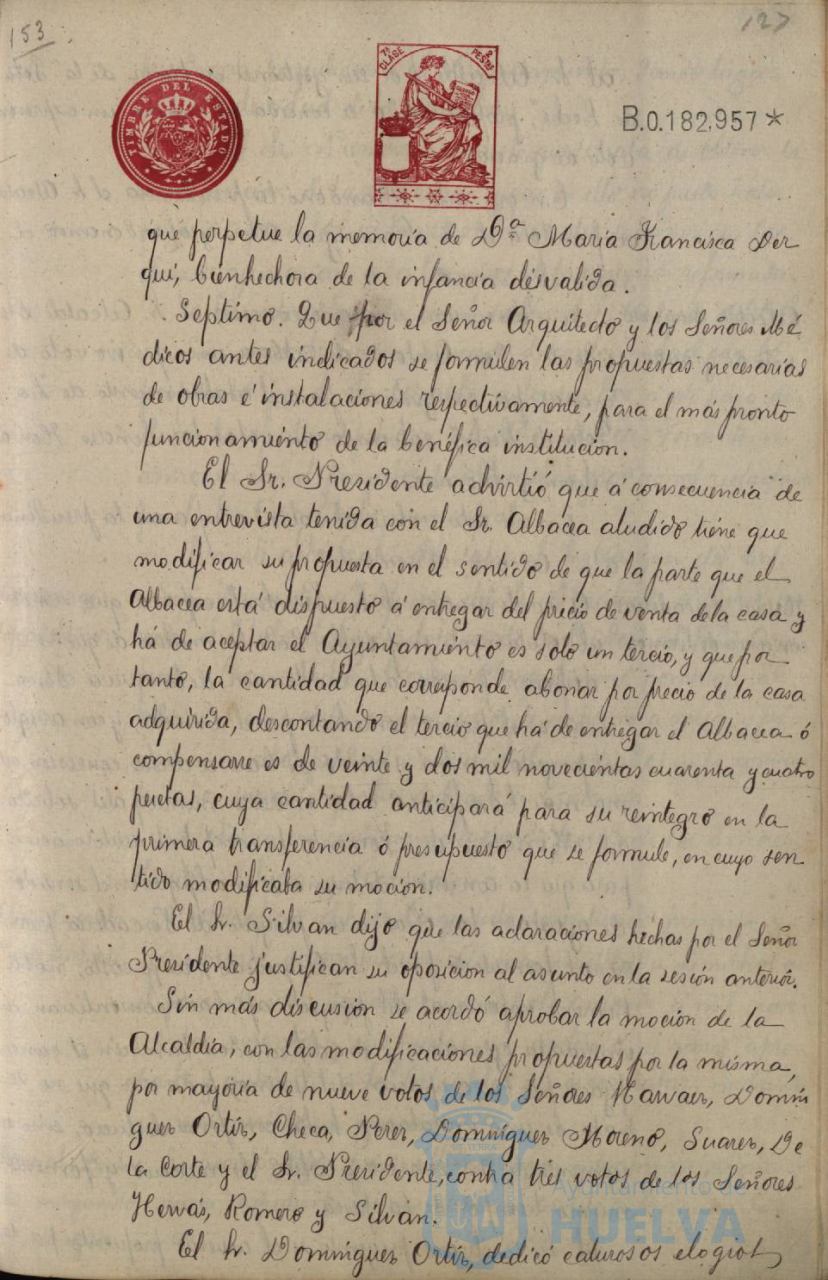 153
127
TIMBRE DEL ESTADO
7ª CLASE 2 PESETAS
B.0.182,957*
que perpetue la memoria de Dª Maria Francisca Der
qui, bienhechora de la infancia desvalida.
Septimo. Que por el Señor Arquitecto y los Señores Mé
dicos antes indicados se formulen las propuestas necesarias
de obras é instalaciones respectivamente, para el más pronto
funcionamiento de la benéfica institucion.
El Sr. Presidente advirtió que á consecuencia de
una entrevista tenida con el Sr. Albacea aludido tiene que
modificar su propuesta en el sentido de que la parte que el
Albacea está dispuesto á entregar del precio de venta de la casa y
há de aceptar el Ayuntamiento es solo un tercio, y que por
tanto, la cantidad que corresponde abonar por precio de la casa
adquirida, descontando el tercio que há de entregar el Albacea ó
compensarse es de veinte y dos mil novecientas cuarenta y cuatro
pesetas, cuya cantidad anticipará para su reintegro en la
primera transferencia ó presupuesto que se formule, en cuyo sen
tido modificaba su mocion.
El Sr. Silvan dijo que las aclaraciones hechas por el Señor
Presidente justifican su oposicion al asunto en la sesión anterior.
Sin más discusion se acordó aprobar la moción de la
Alcaldía, con las modificaciones propuestas por la misma,
por mayoría de nueve votos de los Señores Narvaez, Domin
guez Ortiz, Checa, Perez, Dominguez Moreno, Suarez, De
la Corte y el Sr. Presidente, contra tres votos de los Señores
Hervás, Romero y Silván.
El Sr. Dominguez Ortiz, dedicó calurosos elogios
Ayuntamiento de
HUELVA